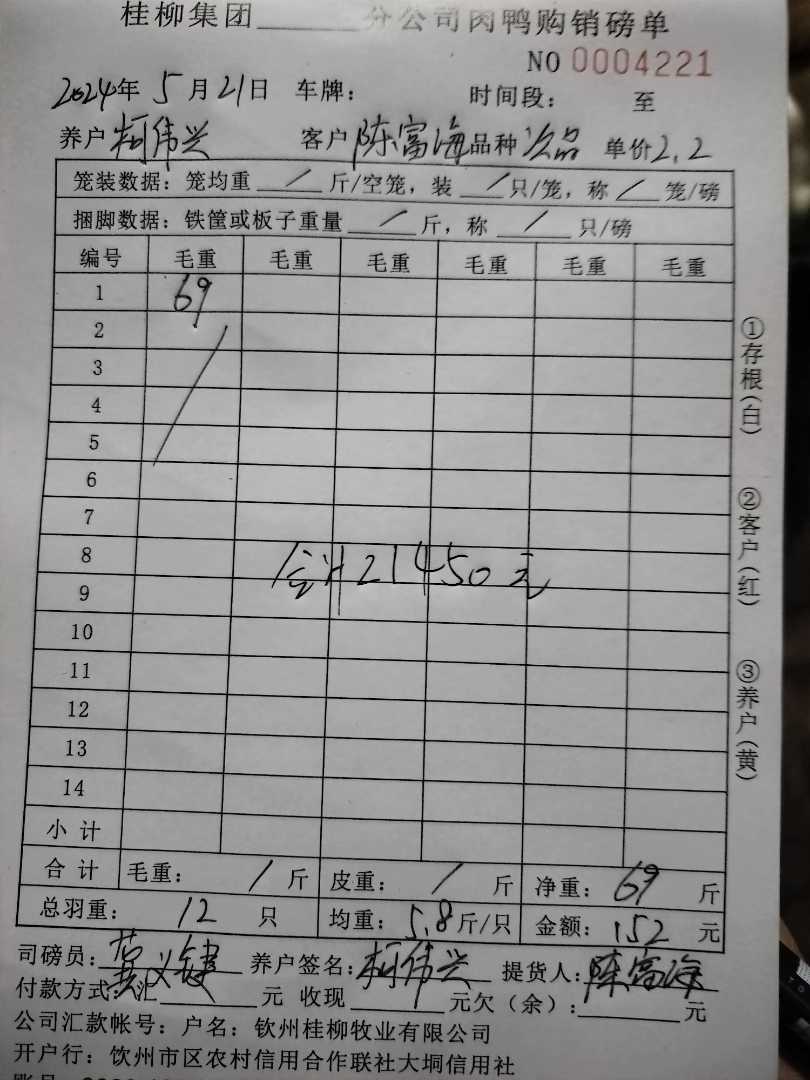 桂柳集团______分公司肉鸭购销磅单
NO 0004221
2024年 5月21日 车牌: 时间段: 至
养户 柯伟兴 客户 陈富海 品种 次品 单价 2.2
笼装数据: 笼均重 / 斤/空笼, 装 / 只/笼, 称 / 笼/磅
捆脚数据: 铁筐或板子重量 / 斤, 称 / 只/磅
编号 毛重 毛重 毛重 毛重 毛重 毛重
1 69
2
3
4
5
6
7
8
合计21450元
9
10
11
12
13
14
小 计
合 计 毛重: / 斤 皮重: / 斤 净重: 69 斤
总羽重: 12 只 均重: 5.8 斤/只 金额: 152 元
司磅员: 黄义键 养户签名: 柯伟兴 提货人: 陈富海
付款方式: 汇______元 收现______元欠(余):______元
公司汇款帐号: 户名: 钦州桂柳牧业有限公司
开户行: 钦州市区农村信用合作联社大垌信用社
①存根(白) ②客户(红) ③养户(黄)